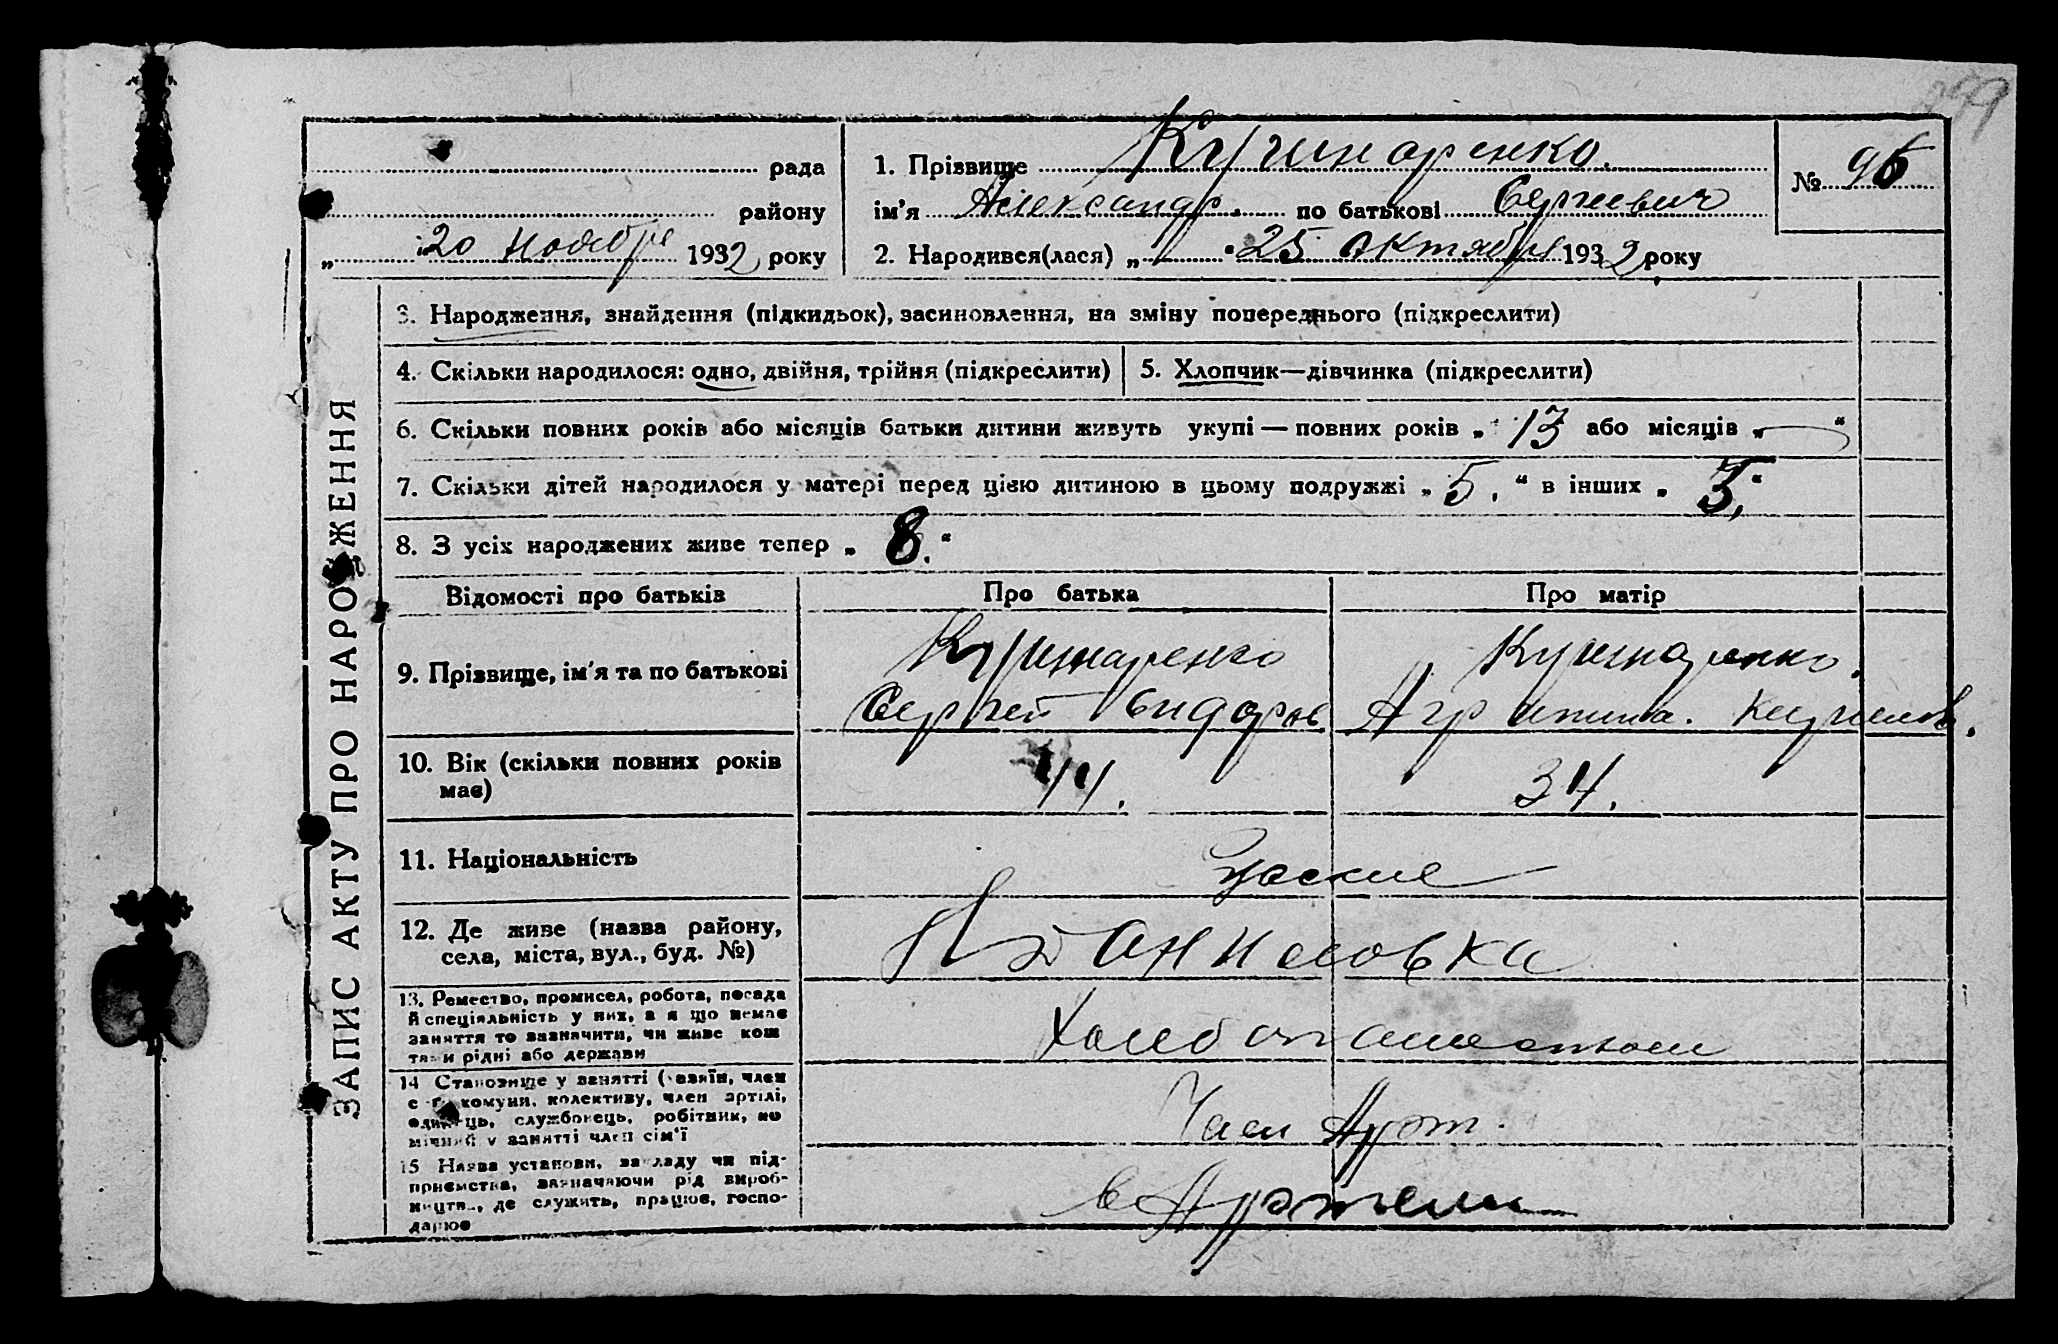 299
рада
району
„ 20 ноября 1932 року
1. Прізвище Кушнаренко.
ім'я Александр. по батькові Сергеевич
2. Народився(лася) „ 25 Октября 1932 року
№ 96
ЗАПИС АКТУ ПРО НАРОДЖЕННЯ
3. Народження, знайдення (підкидьок), засиновлення, на зміну попереднього (підкреслити)
4. Скільки народилося: одно, двійня, трійня (підкреслити)
5. Хлопчик—дівчинка (підкреслити)
6. Скільки повних років або місяців батьки дитини живуть укупі — повних років „ 13 або місяців „ — “
7. Скільки дітей народилося у матері перед цією дитиною в цьому подружжі „ 5. “ в інших „ 3. “
8. З усіх народжених живе тепер „ 8. “
Відомості про батьків
Про батька
Про матір
9. Прізвище, ім'я та по батькові
Кушнаренко
Сергей Сидоров
Кушнаренко.
Агрипина.
10. Вік (скільки повних років
має)
44.
34.
11. Національність
12. Де живе (назва району,
села, міста, вул., буд. №)
13. Ремество, промисел, робота, посада
й спеціяльність у них, а якщо немає
заняття то зазначити, чи живе кош
тами рідні або держави
Хлебопашеством
14 Становище у занятті (хазяїн, член
с.-г. комуни, колективу, член артілі,
одинець, службовець, робітник, по
мічний у занятті член сім'ї
Член Арт.
15 Назва установи, закладу чи під-
приємства, зазначаючи рід вироб-
ництва, де служить, працює, госпо-
дарює
в Артели